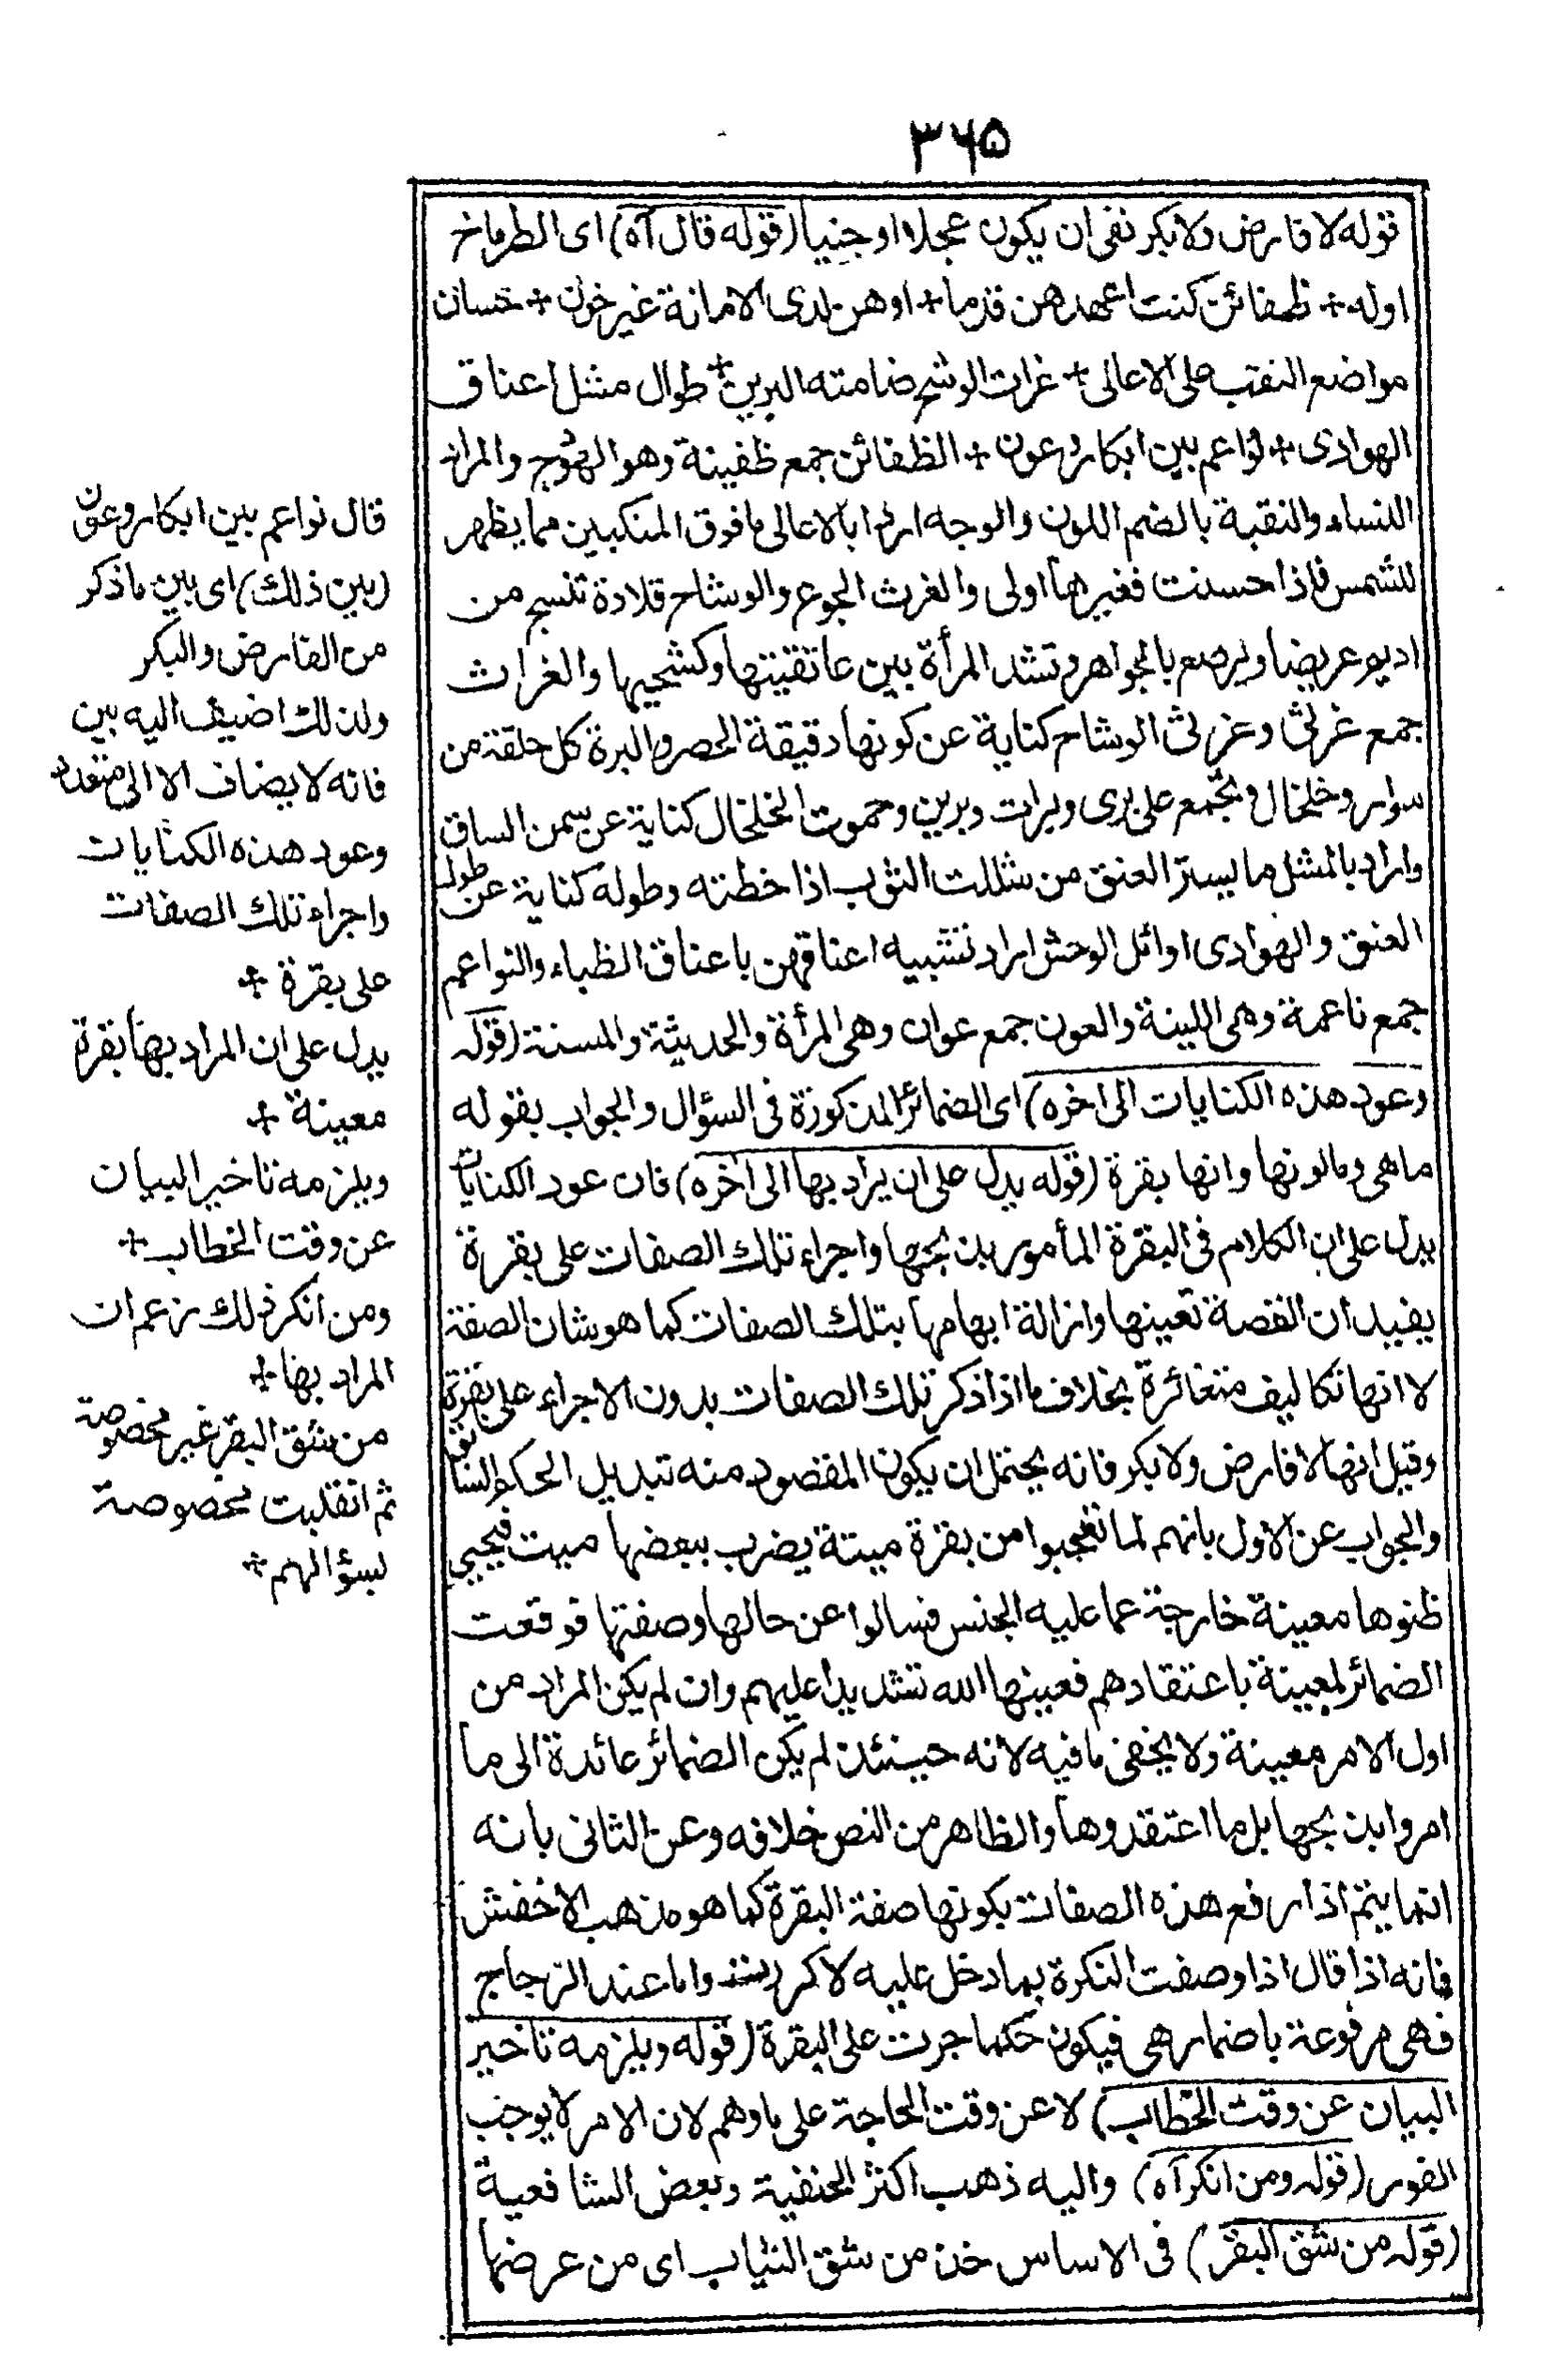 ٣٦٥
قوله لا فارض ولا بكر نفى ان يكون عجلا او جنيا (قوله قال آه) اى الطرماخ
اوله + ظعائن كنت اعهدهن قدما + اوهن لدى الامانة غير خون + حسان
مواضع النقب على الاعالى + غراث الوشح صامته البرين + طوال مشل اعناق
الهوادى + نواعم بين ابكار وعون + الظعائن جمع ظعينة وهو الهودج والمراد
النساء والنقبة بالضم اللون والوجه اراد بالاعالى ما فوق المنكبين مما يظهر
للشمس فاذا حسنت فغيرها اولى والغرث الجوع والوشاح قلادة تنسج من
اديم عريضا ويرصع بالجواهر وتشد المرأة بين عاتقيتها وكشحيها والغراث
جمع غرثى وغرثى الوشاح كناية عن كونها دقيقة الخصر والبرة كل حلقة من
سوار وخلخال ويجمع على برى وبرات وبرين وحموت الخلخال كناية عن سمن الساق
واراد بالمشل ما يستر العنق من شللت الثوب اذا خطته وطوله كناية عن طول
العنق والهوادى اوائل الوحش اراد تشبيه اعناقهن باعناق الظباء والنواعم
جمع ناعمة وهى اللينة والعون جمع عوان وهى المرأة والحديثة والمسنة (قوله
وعود هذه الكنايات الى اخره) اى الضمائر المذكورة فى السؤال والجواب بقوله
ماهى ومالونها وانها بقرة (قوله يدل على ان يراد بها الى اخره) فان عود الكنايات
يدل على ان الكلام فى البقرة المأمور بذبحها واجراء تلك الصفات على بقرة
يفيد ان القصة تعيينها وازالة ابهامها بتلك الصفات كما هو شان الصفة
لا انها تكاليف متغائرة بخلاف ما اذا ذكر تلك الصفات بدون الاجراء على بقرة
وقيل انها لا فارض ولا بكر فانه يحتمل ان يكون المقصود منه تبديل الحكم السابق
والجواب عن الاول بانهم لما تعجبوا من بقرة ميتة يضرب ببعضها ميت فيحيى
ظنوها معينة خارجة عما عليه الجنس فسالوا عن حالها وصفتها فوقعت
الضمائر لمعينة باعتقادهم فعينها الله تشديدا عليهم وان لم يكن المراد من
اول الامر معينة ولا يخفى ما فيه لانه حينئذ لم يكن الضمائر عائدة الى ما
امروا بذبحها بل ما اعتقدوها والظاهر من النص خلافه وعن الثانى بانه
انما يتم اذا رفع هذه الصفات بكونها صفة البقرة كما هو مذهب الاخفش
فانه اذا قال اذا وصفت النكرة بما دخل عليه لا كررت واما عند الزجاج
فهى مرفوعة باضمار هى فيكون حكما جرت على البقرة (قوله ويلزمه تاخير
البيان عن وقت الخطاب) لا عن وقت الحاجة على ما وهم لان الامر لا يوجب
الفور (قوله ومن انكر آه) واليه ذهب اكثر الحنفية وبعض الشافعية
(قوله من شق البقر) فى الاساس خذ من شق الثياب اى من عرضها
قال نواعم بين ابكار وعون
(بين ذلك) اى بين ما ذكر
من الفارض والبكر
ولذلك اضيف اليه بين
فانه لا يضاف الا الى متعدد
وعود هذه الكنايات
واجراء تلك الصفات
على بقرة +
يدل على ان المراد بها بقرة
معينة +
ويلزمه تاخير البيان
عن وقت الخطاب +
ومن انكر ذلك زعم ان
المراد بها +
من شق البقر غير مخصوصة
ثم انقلبت مخصوصة
لسؤالهم +